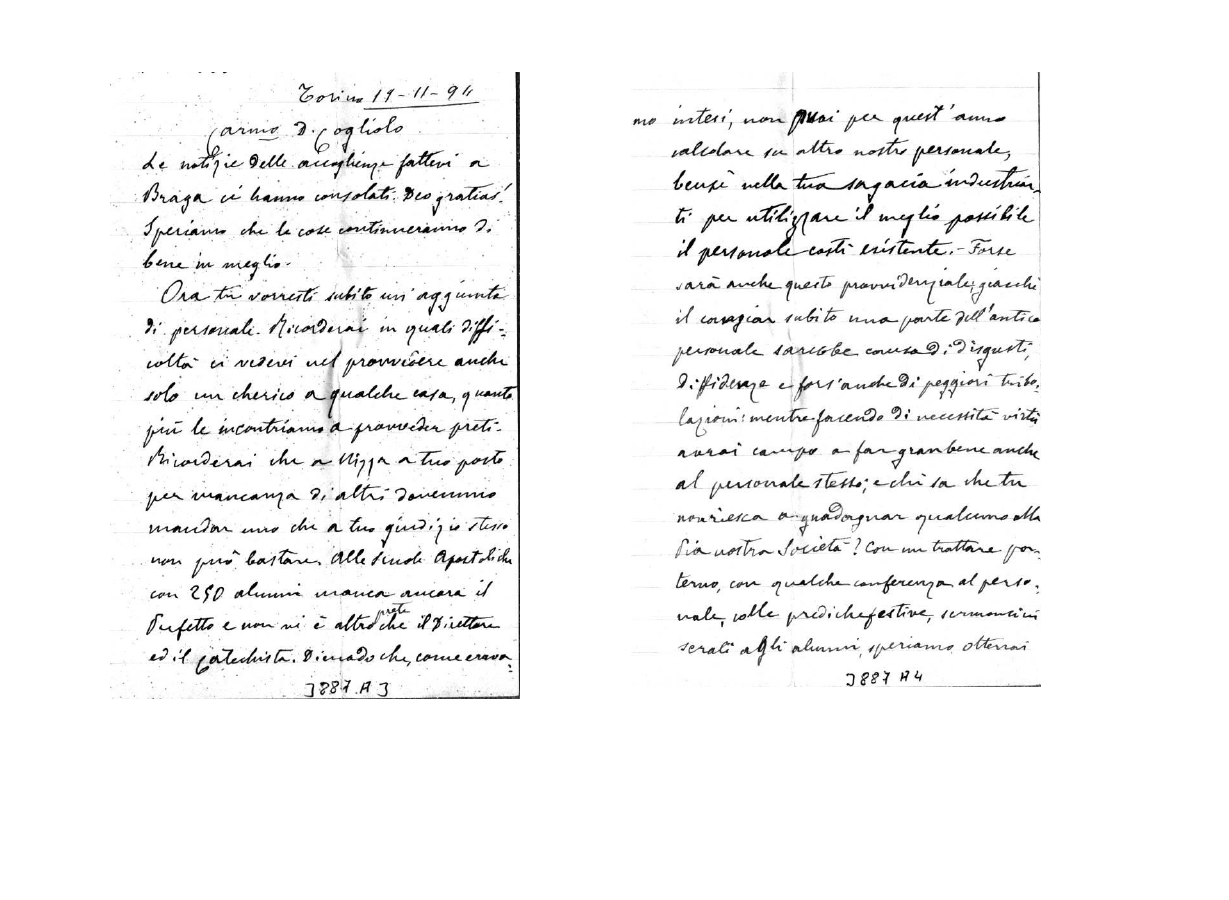 Torino 19-11-94
Carmo D. Cogliolo
Le notizie delle accoglienze fattevi a
Braga ci hanno consolati. Deo gratias!
Speriamo che le cose continueranno di
bene in meglio.
Ora tu vorresti subito un'aggiunta
di personale. Ricorderai in quali diffi-
coltà ci vedevi nel provvedere anche
solo un cherico a qualche casa, quante
più le incontriamo a provveder preti.
Ricorderai che a Nizza a tuo posto
per mancanza di altri dovemmo
mandar uno che a tuo giudizio stesso
non può bastare. Alle Scuole Apostoliche
con 250 alunni manca ancora il
Prefetto e non vi è altro prete che il Direttore
ed il Catechista. Dimodoche, come erava-
3887 A 3
mo intesi, non puoi per quest'anno
calcolare su altro nostro personale,
bensì nella tua sagacia industriar-
ti per utilizzare il meglio possibile
il personale costì esistente. - Forse
sarà anche questo provvidenziale; giacchè
il congiar subito una parte dell'antico
personale sarebbe causa di disgusti,
diffidenze e fors'anche di peggiori tribo-
lazioni: mentre facendo di necessità virtù
avrai campo a far gran bene anche
al personale stesso; e chi sa che tu
non riesca a guadagnar qualcuno alla
Pia nostra Società? Con un trattare pa-
terno, con qualche conferenza al perso-
nale, colle prediche festive, sermoncini
serali agli alunni, speriamo otterrai
3887 A4